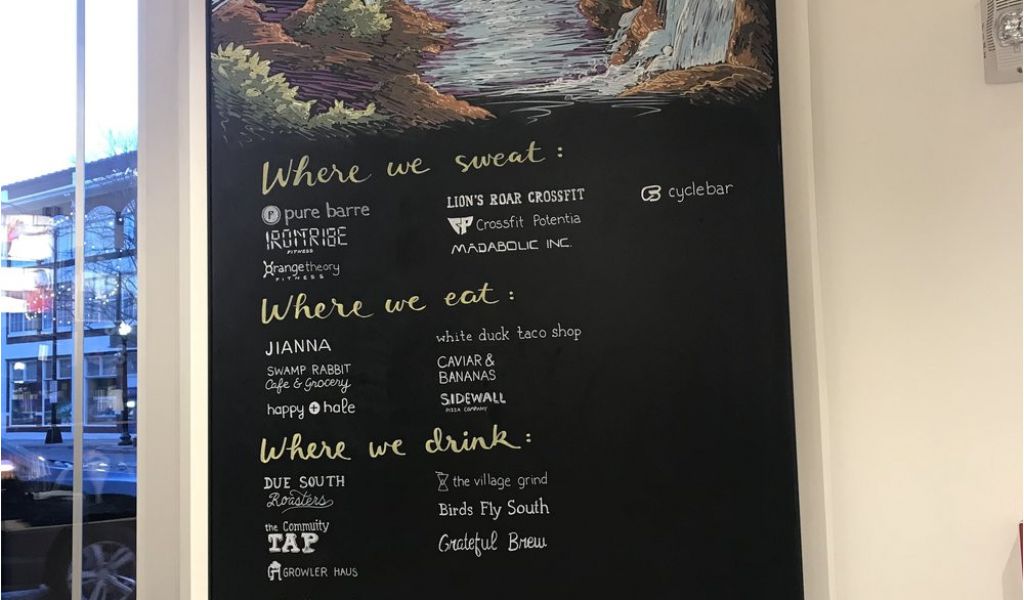 Where we sweat:
pure barre
IRONTRIBE
FITNESS
Orangetheory
FITNESS
LION'S ROAR CROSSFIT
CP Crossfit Potentia
MADABOLIC INC.
cyclebar
Where we eat:
JIANNA
SWAMP RABBIT
Cafe & Grocery
happy + hale
white duck taco shop
CAVIAR &
BANANAS
SIDEWALL
PIZZA COMPANY
Where we drink:
DUE SOUTH
Roasters
the Commuity
TAP
GROWLER HAUS
the village grind
Birds Fly South
Grateful Brew